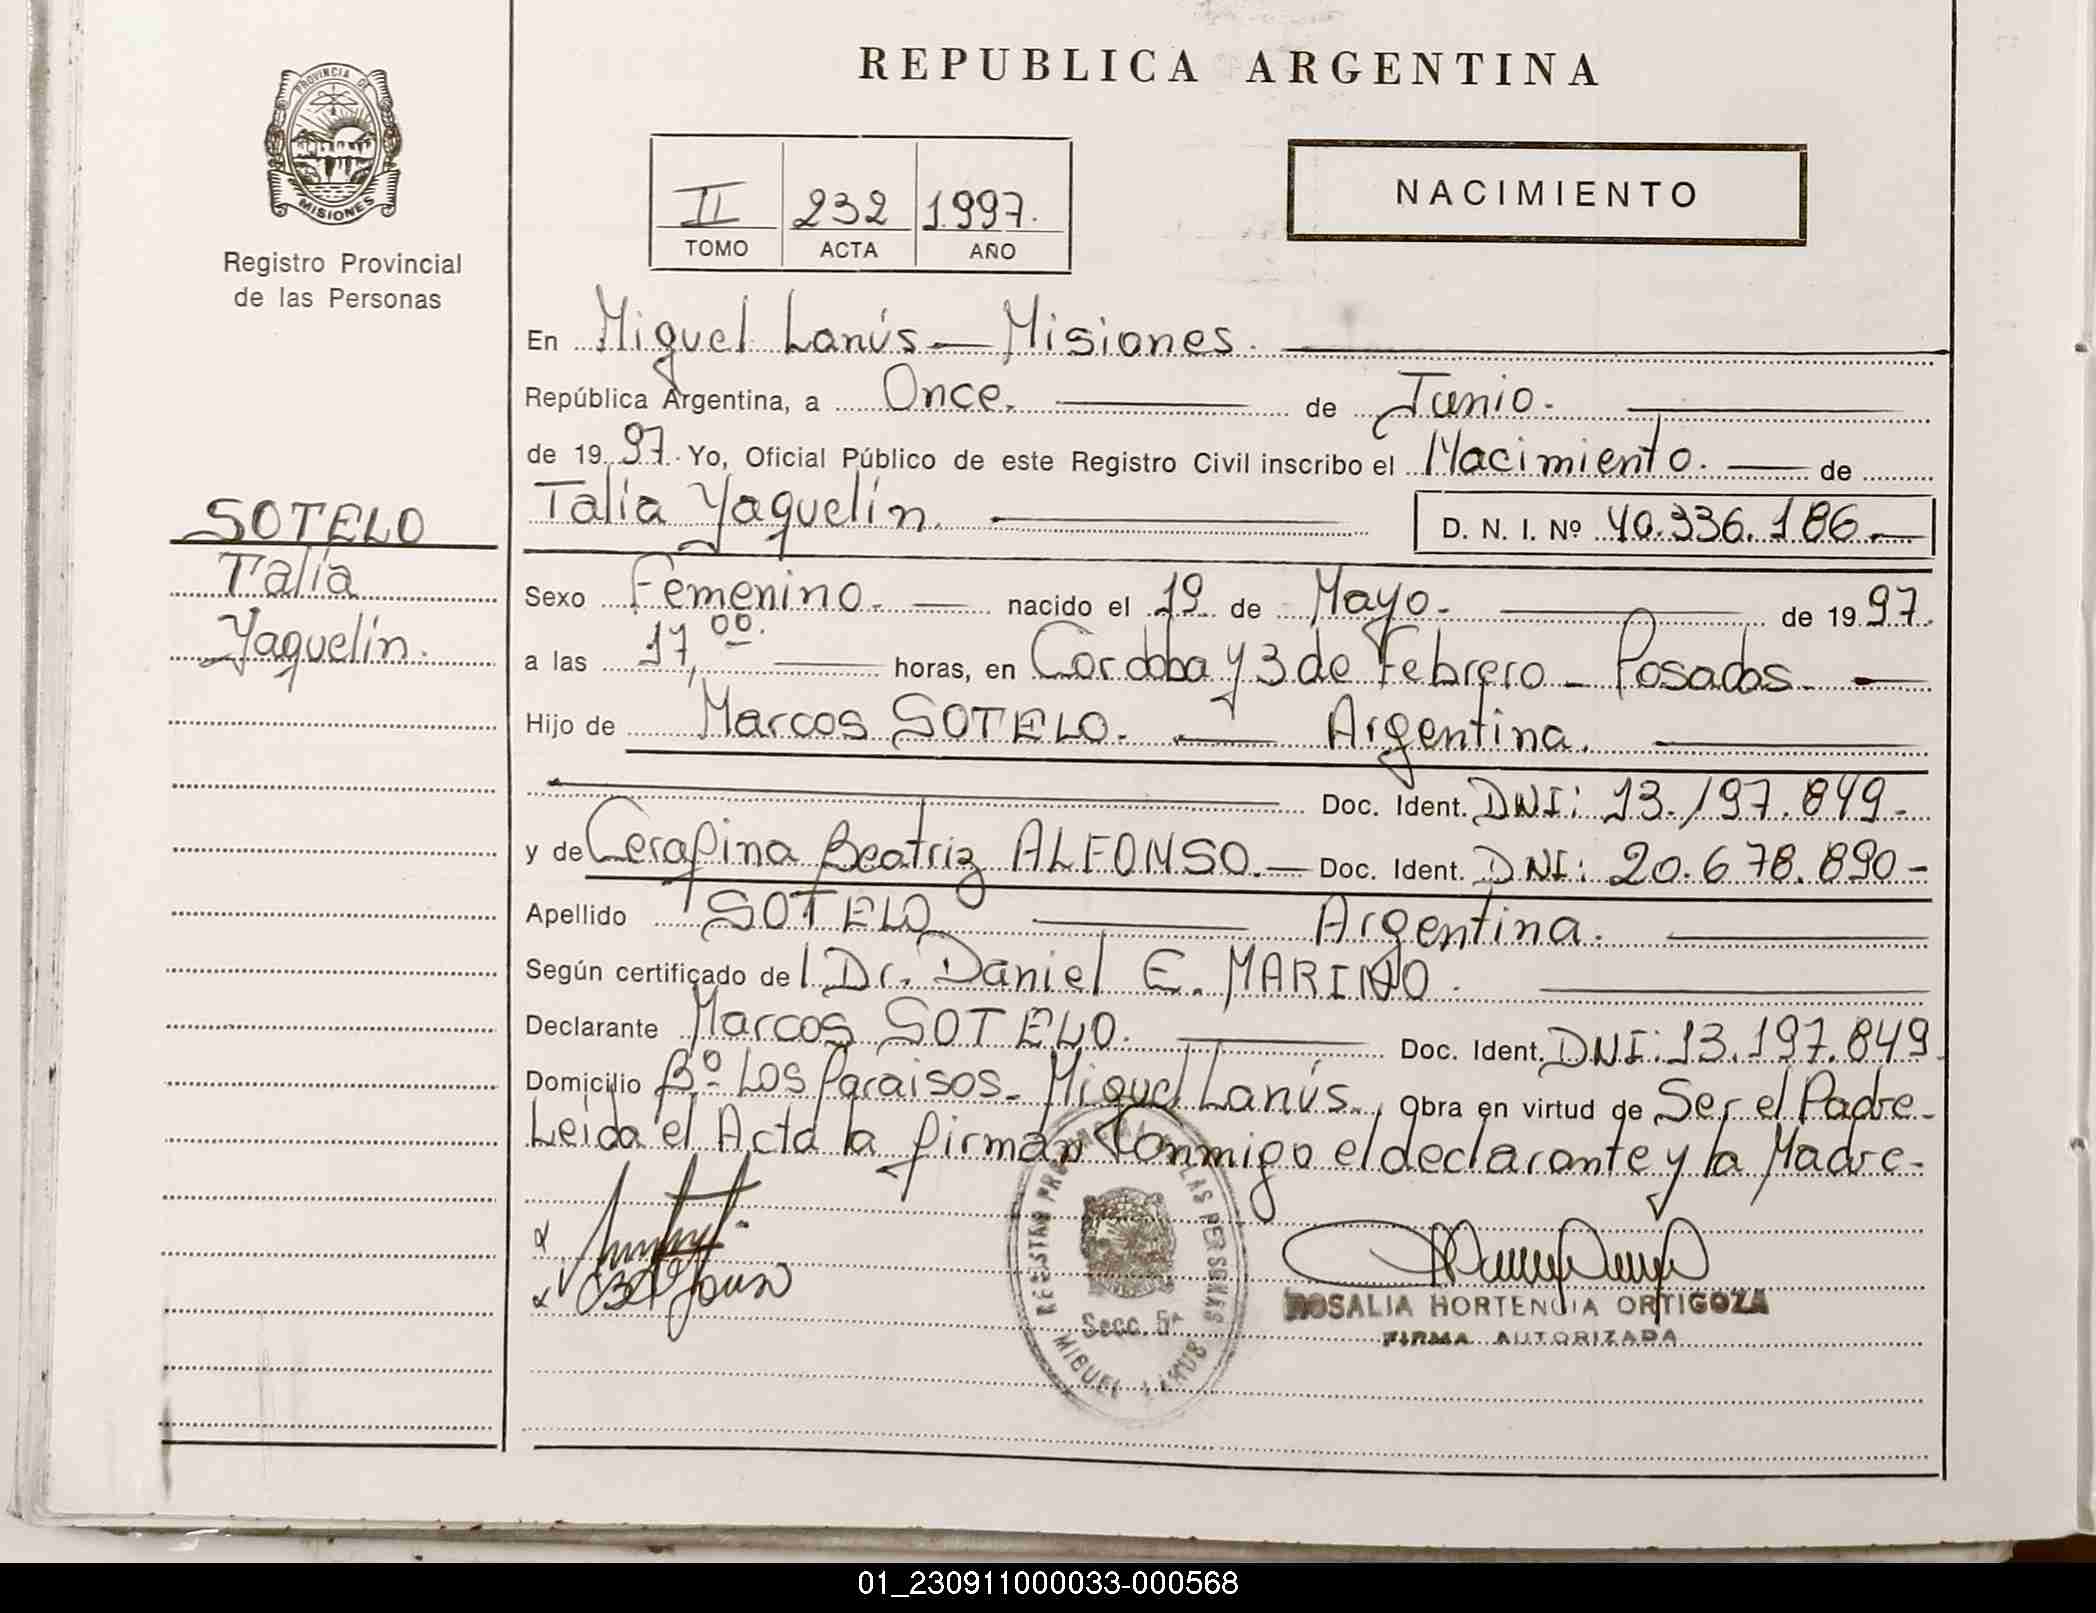 REPUBLICA ARGENTINA
PROVINCIA DE
MISIONES
Registro Provincial
de las Personas
II 232 1997.
TOMO ACTA AÑO
NACIMIENTO
En Miguel Lanús — Misiones.
República Argentina, a Once. de Junio.
de 19 97. Yo, Oficial Público de este Registro Civil inscribo el Nacimiento. de
Talía Yaquelín. D. N. I. Nº 40.336.186.
SOTELO
Talía
Yaquelín.
Sexo Femenino. nacido el 19 de Mayo. de 19 97.
a las 17,00. horas, en Cordoba y 3 de Febrero - Posadas.
Hijo de Marcos SOTELO. — Argentina.
Doc. Ident. DNI: 13.197.849.-
y de Cerafina Beatriz ALFONSO. — Doc. Ident. DNI: 20.678.890-
Apellido SOTELO Argentina.
Según certificado del Dr. Daniel E. MARINO.
Declarante Marcos SOTELO. Doc. Ident. DNI: 13.197.849.
Domicilio Bº Los Paraisos - Miguel Lanús. Obra en virtud de Ser el Padre.
Leída el Acta la firman Conmigo el declarante y la Madre.-
REGISTRO PROVINCIAL DE LAS PERSONAS
Secc. 5ª
MIGUEL LANUS
ROSALIA HORTENCIA ORTIGOZA
FIRMA AUTORIZADA
01_230911000033-000568